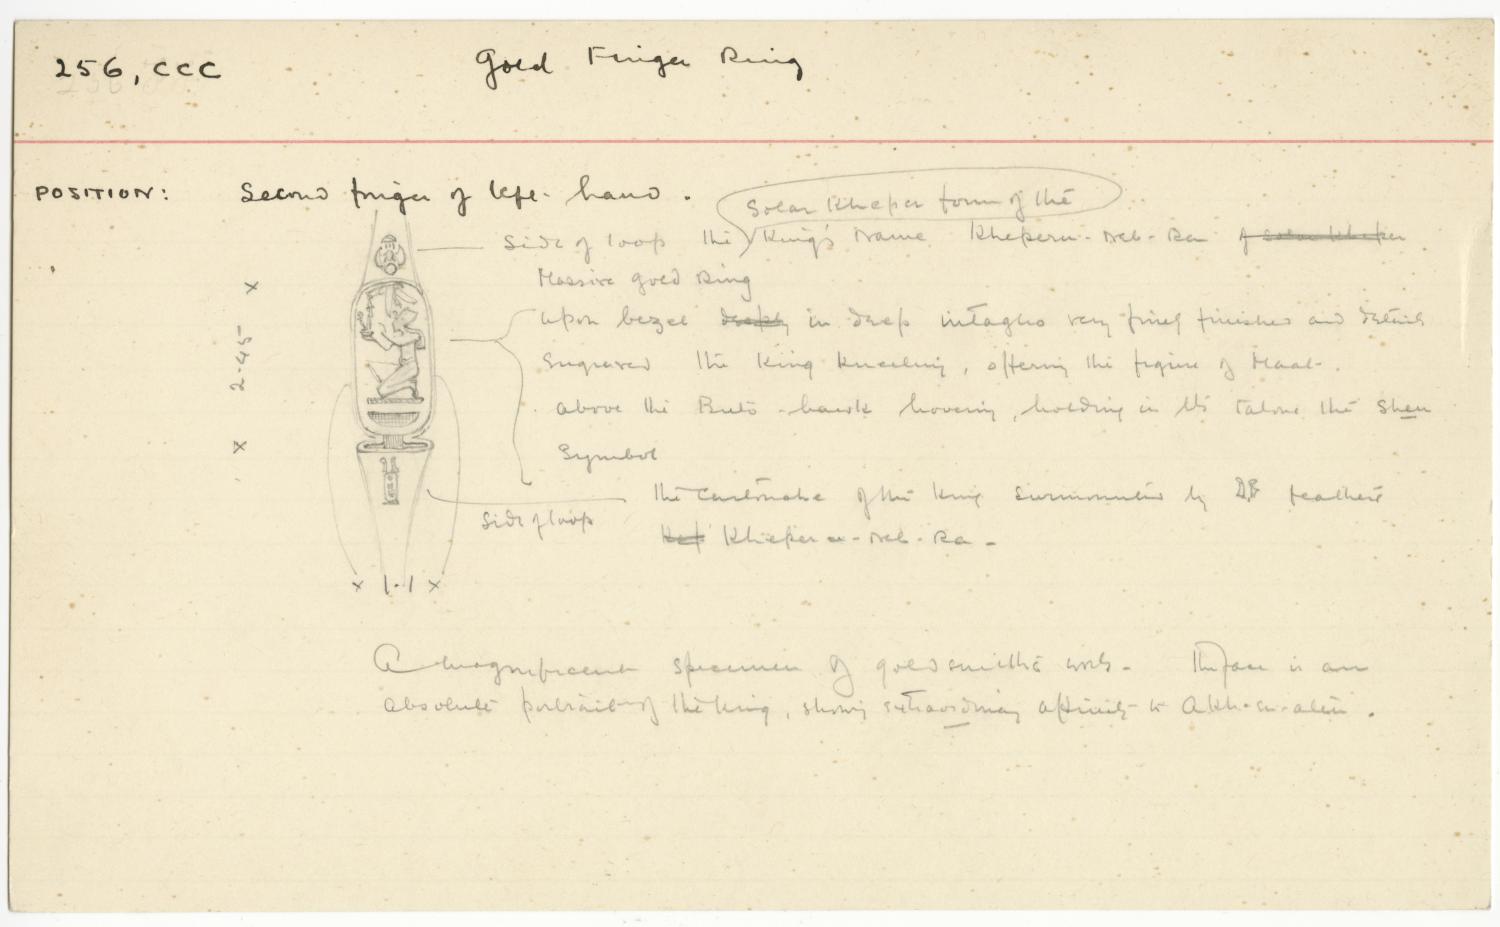 256, CCC
Gold Finger Ring
POSITION: Second finger of left hand.
Solar Kheper form of the
Side of loop the King's name Kheperu-neb-Ra of solar Kheper
Massive gold Ring
Upon bezel deeply in deep intaglio very finely finished and details
engraved the King kneeling, offering the figure of Maat.
above the Buto-hawk hovering, holding in its talons the Shen
Symbol
Side of loop
the cartouche of the King surmounted by feathers
Kep Kheperu-neb-Ra -
x 2.45 x
x 1.1 x
A magnificent specimen of goldsmith's work - The face is an
absolute portrait of the King, showing extraordinary affinity to Akh-en-aten.